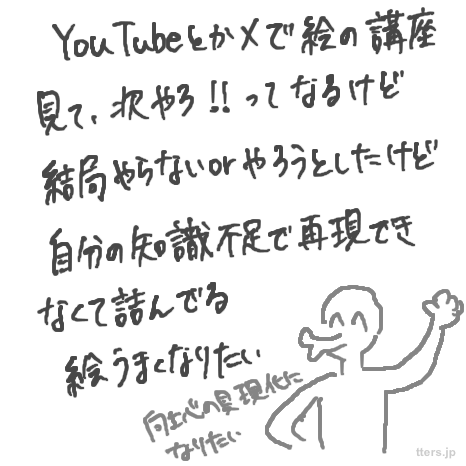 YouTubeとかXで絵の講座
見て、次やろ!!ってなるけど
結局やらないorやろうとしたけど
自分の知識不足で再現でき
なくて詰んでる
絵うまくなりたい
向上心の具現化に
なりたい
tters.jp